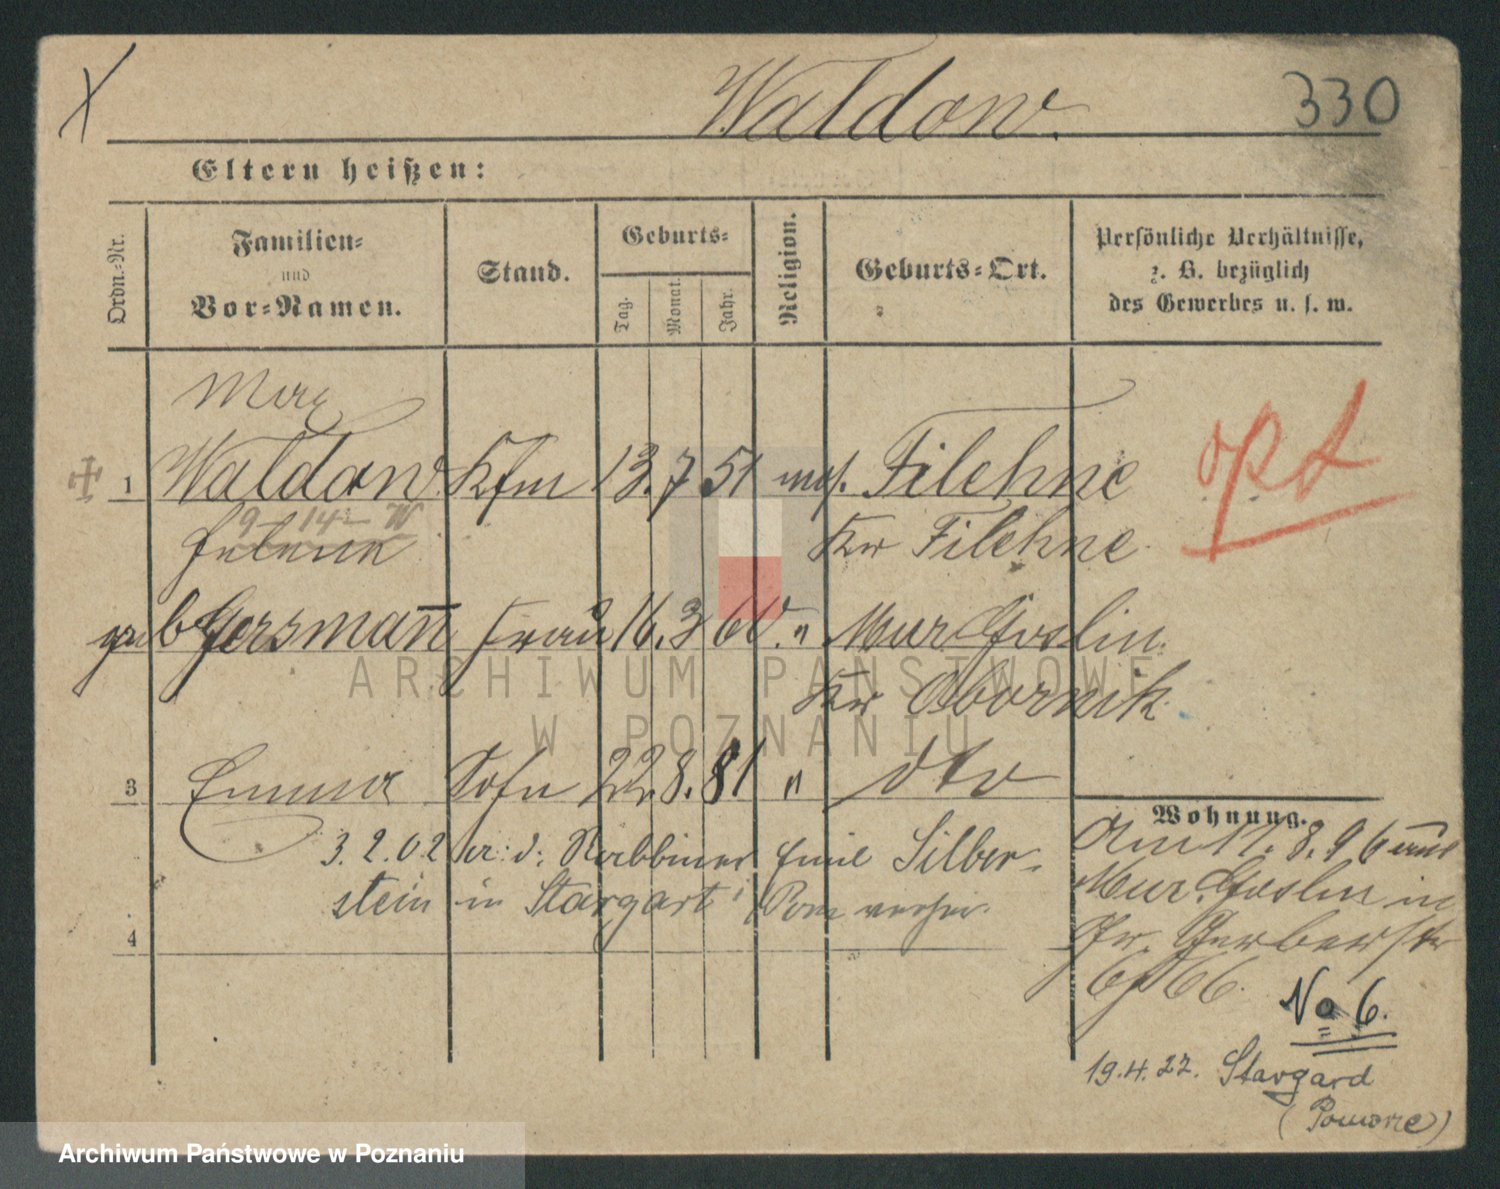 X
Waldow.
330
Eltern heißen:
Ordn.-Nr.
Familien-
und
Vor-Namen.
Stand.
Geburts-
Tag.
Monat.
Jahr.
Religion.
Geburts-Ort.
Persönliche Verhältnisse,
z. B. bezüglich
des Gewerbes u. s. w.
1 Waldow Kfm 13. 7 51 mos. Filehne
opt
9 14 W
Kr Filehne
geb Gersman̅ Frau 16. 3 60. " Mur. Goslin.
Kr Obornik
3 Emma 22. 8. 81 " dto
Wohnung.
3. 2. 02 Rabbiner Emil Silber-
Am 17. 8. 96 aus
stein in Stargart i/Pom
Mur. Goslin in
4
Gr. Gerberstr
6 66.
No 6.
19.4.22. Stargard
(Pomorze)
ARCHIWUM PAŃSTWOWE
W POZNANIU
Archiwum Państwowe w Poznaniu